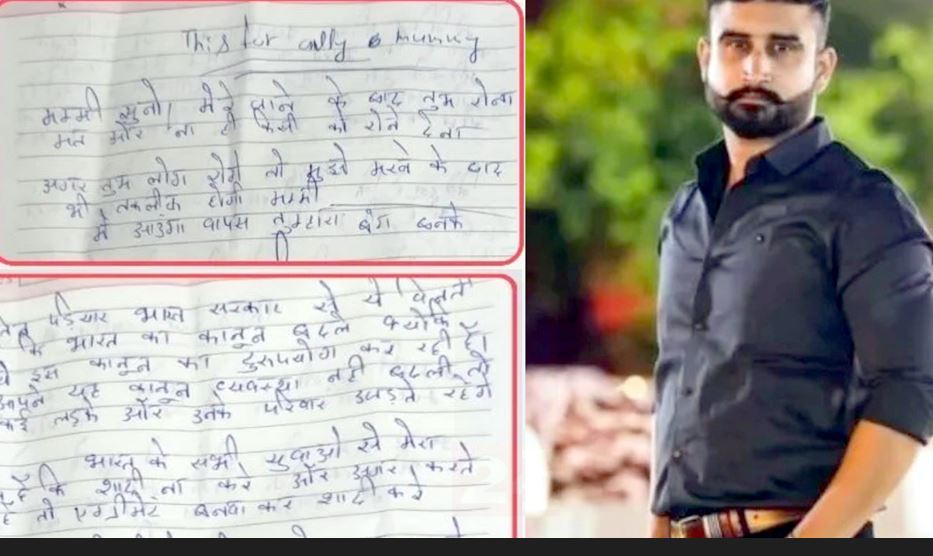 This for only mummy
मम्मी सुनो। मेरे जाने के बाद तुम रोना
मत और ना ही किसी को रोने देना
अगर तुम लोग रोये तो मुझे मरने के बाद
भी तकलीफ होगी मम्मी
में आउंगा वापस तुम्हारा बनके
भारत सरकार से ये
कि भारत का कानून बदले क्योकि
इस कानून का दुरुपयोग कर रही है।
आपने यह कानून व्यवस्था नही बदली तो
कई लड़के और उनके परिवार उजड़ते रहेगे
भारत के सभी युवाओ से मेरा
कि शादी ना करे और अगर करते
है तो एग्रीमेंट बनवा कर शादी करे